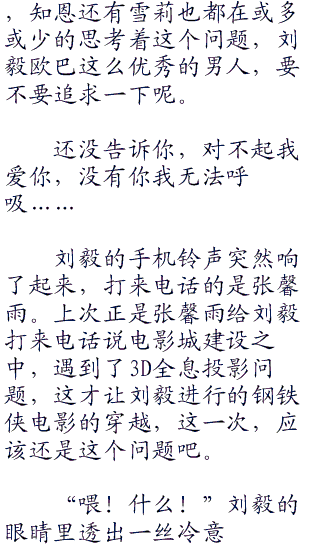 ，知恩还有雪莉也都在或多
或少的思考着这个问题，刘
毅欧巴这么优秀的男人，要
不要追求一下呢。
还没告诉你，对不起我
爱你，没有你我无法呼
吸……
刘毅的手机铃声突然响
了起来，打来电话的是张馨
雨。上次正是张馨雨给刘毅
打来电话说电影城建设之
中，遇到了3D全息投影问
题，这才让刘毅进行的钢铁
侠电影的穿越，这一次，应
该还是这个问题吧。
“喂！什么！”刘毅的
眼睛里透出一丝冷意